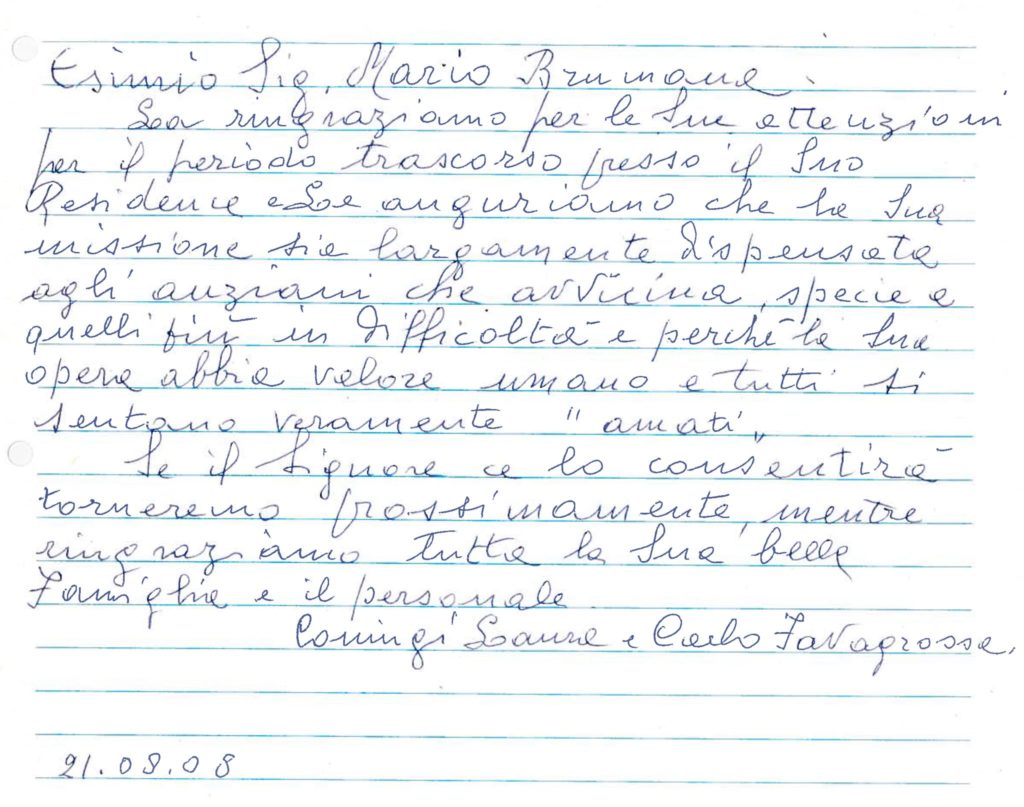 Esimio Sig. Mario Brumana.
La ringraziamo per le Sue attenzioni
per il periodo trascorso presso il Suo
Residence e Le auguriamo che la Sua
missione sia largamente dispensata
agli anziani che avvicina, specie a
quelli più in difficoltà e perchè la Sua
opera abbia valore umano e tutti si
sentano veramente "amati"
Se il Signore ce lo consentirà
torneremo prossimamente, mentre
ringraziamo tutta la Sua bella
Famiglia e il personale.
Coniugi Laura e Carlo Favagrossa.
21.08.08